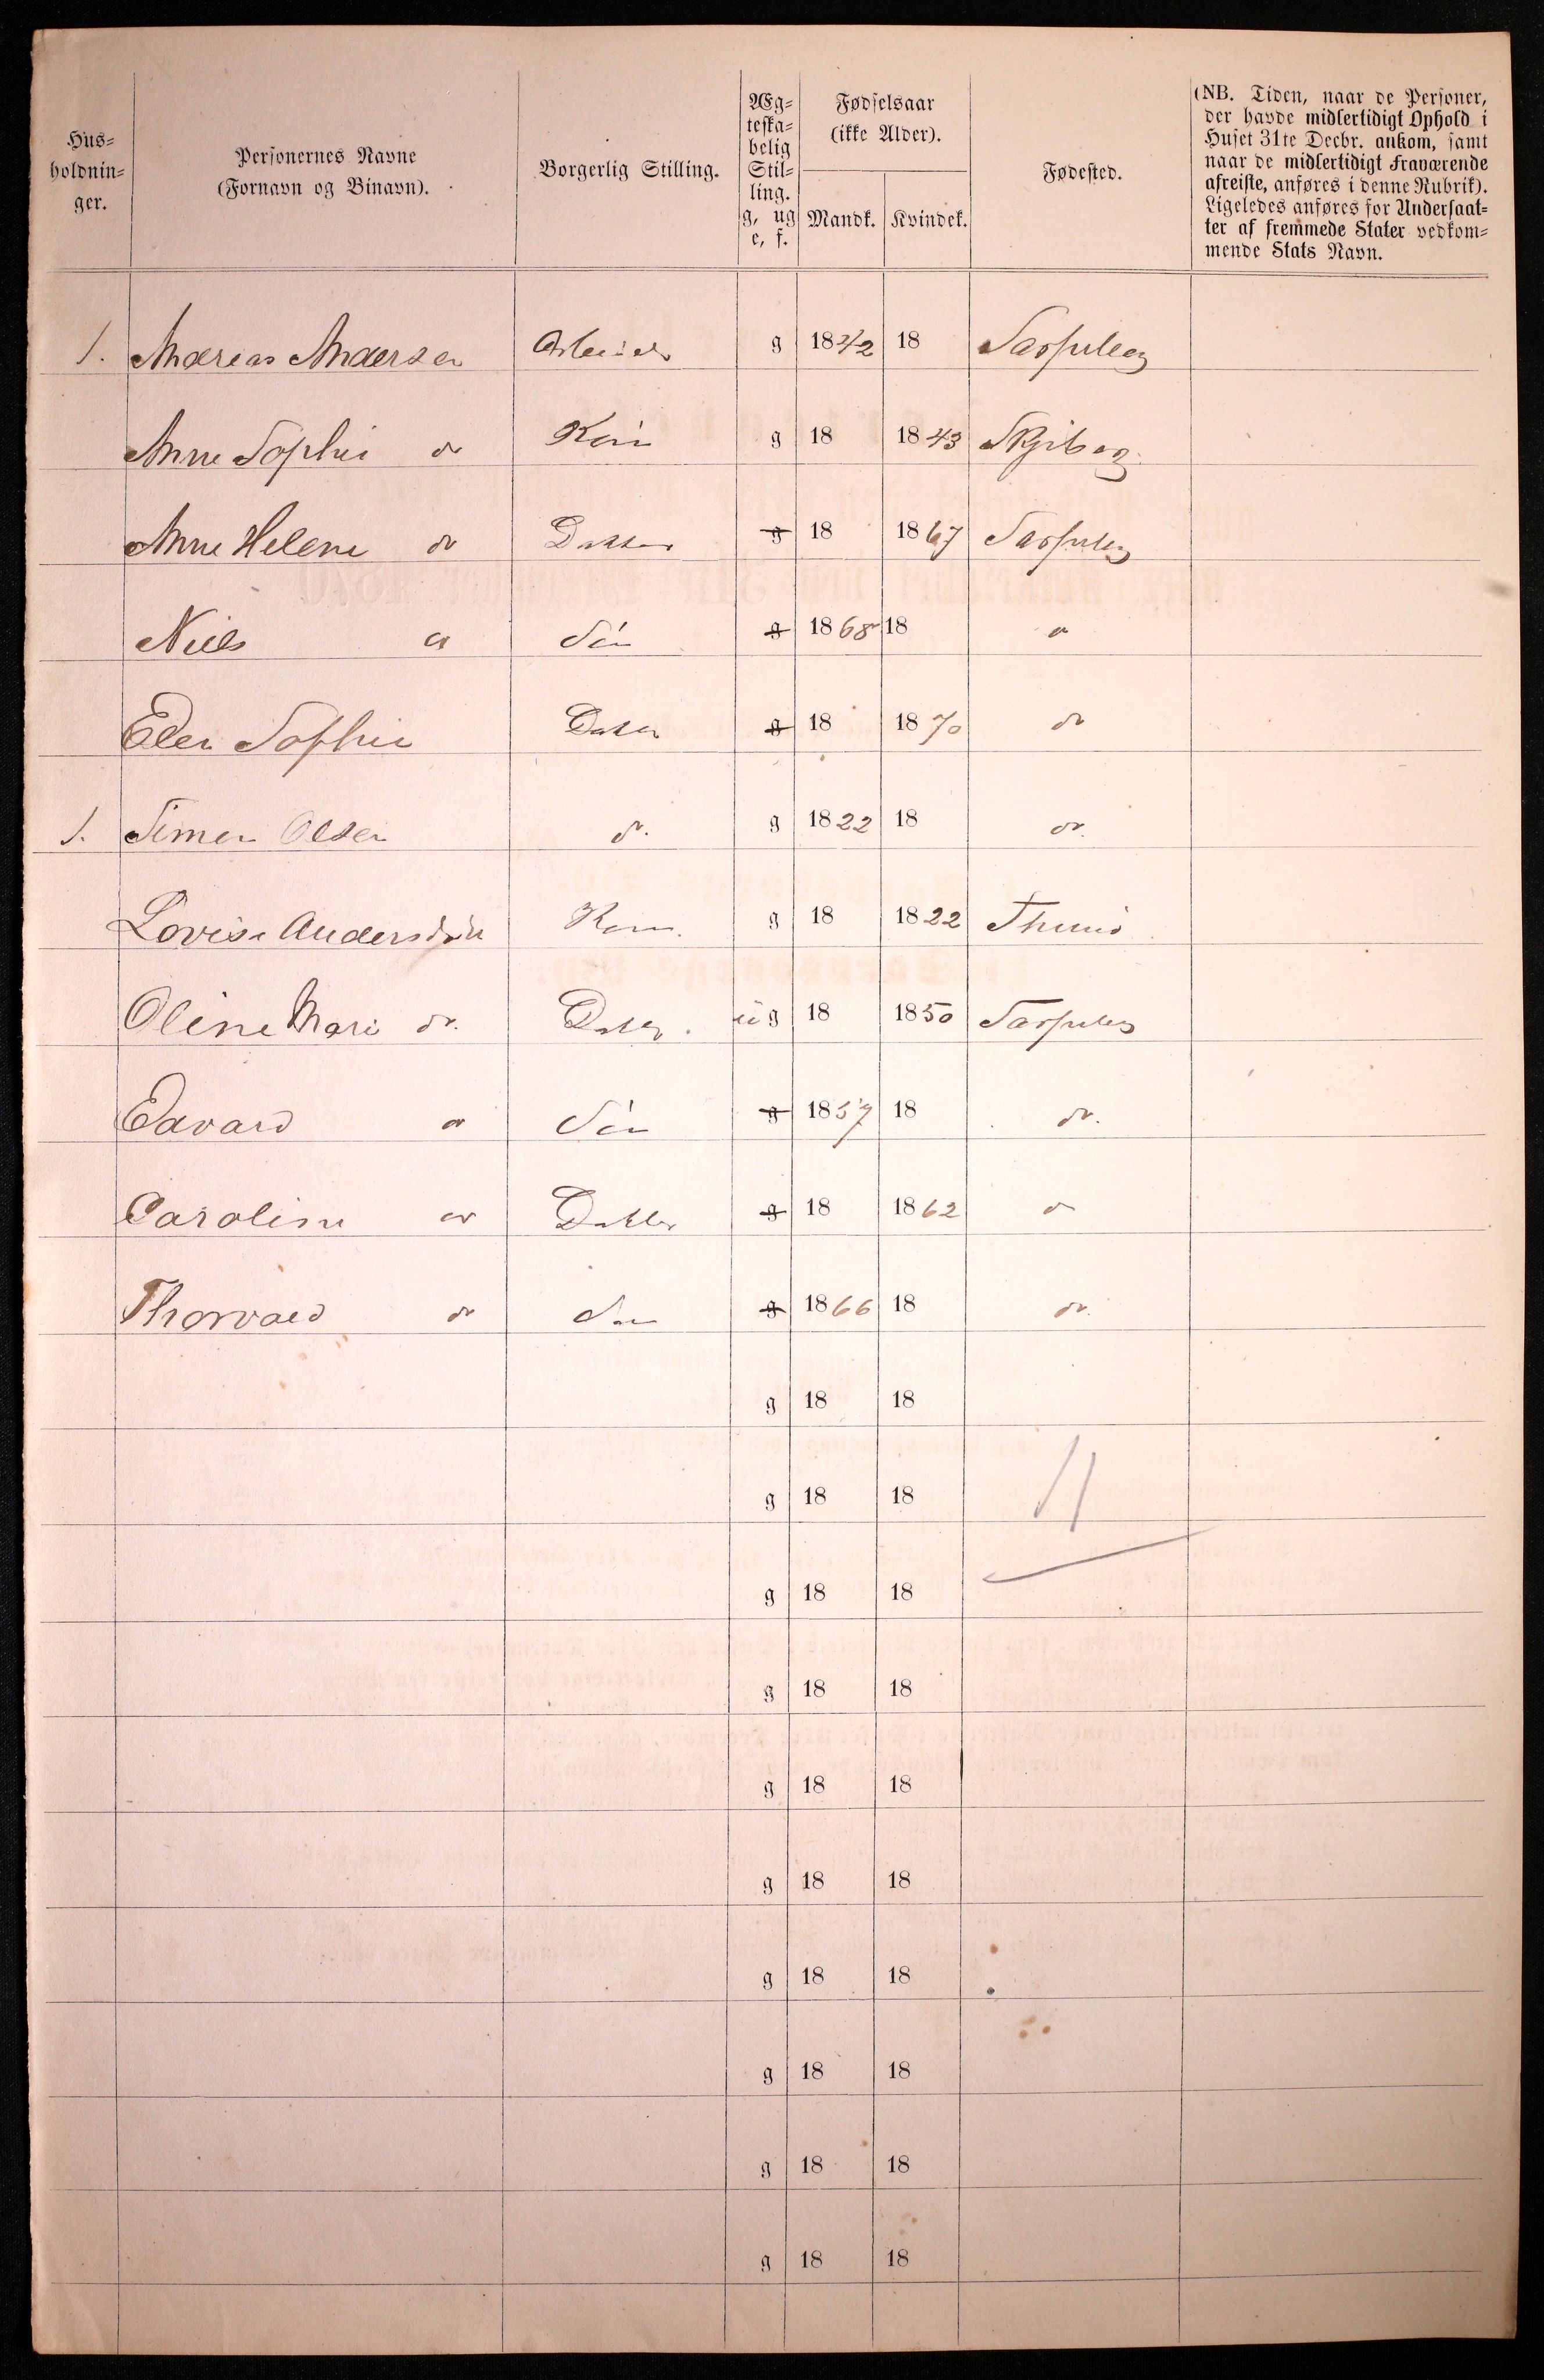 Hus-
holdnin-
ger.
Personernes Navne
(Fornavn og Binavn).
Borgerlig Stilling.
Æg-
teska-
belig
Stil-
ling.
g, ug
e, f.
Fødselsaar
(ikke Alder).
Mandk. Kvindek.
Fødested.
(NB. Tiden, naar de Personer,
der havde midlertidigt Ophold i
Huset 31te Decbr. ankom, samt
naar de midlertidigt Fraværende
afreiste, anføres i denne Rubrik).
Ligeledes anføres for Undersaat-
ter af fremmede Stater vedkom-
mende Stats Navn.
1. Andreas Andersen Arbeider g 1842 18 Sarpsborg
Anne Sophie do Kone g 18 1843 Skjeberg
Anne Helene do Datter g 18 1867 Sarpsborg
Niels do Søn g 1868 18 do
Elen Sophie Datter g 18 1870 do
1. Simen Olsen do. g 1822 18 do.
Lovise Andersdtr Kone. g 18 1822 Thunø
Oline Mari do. Datter. ug 18 1850 Sarpsborg
Edvard do Søn g 1857 18 do.
Caroline do Datter g 18 1862 do
Thorvald do Søn g 1866 18 do.
g 18 18
g 18 18 11
g 18 18
g 18 18
g 18 18
g 18 18
g 18 18
g 18 18
g 18 18
g 18 18